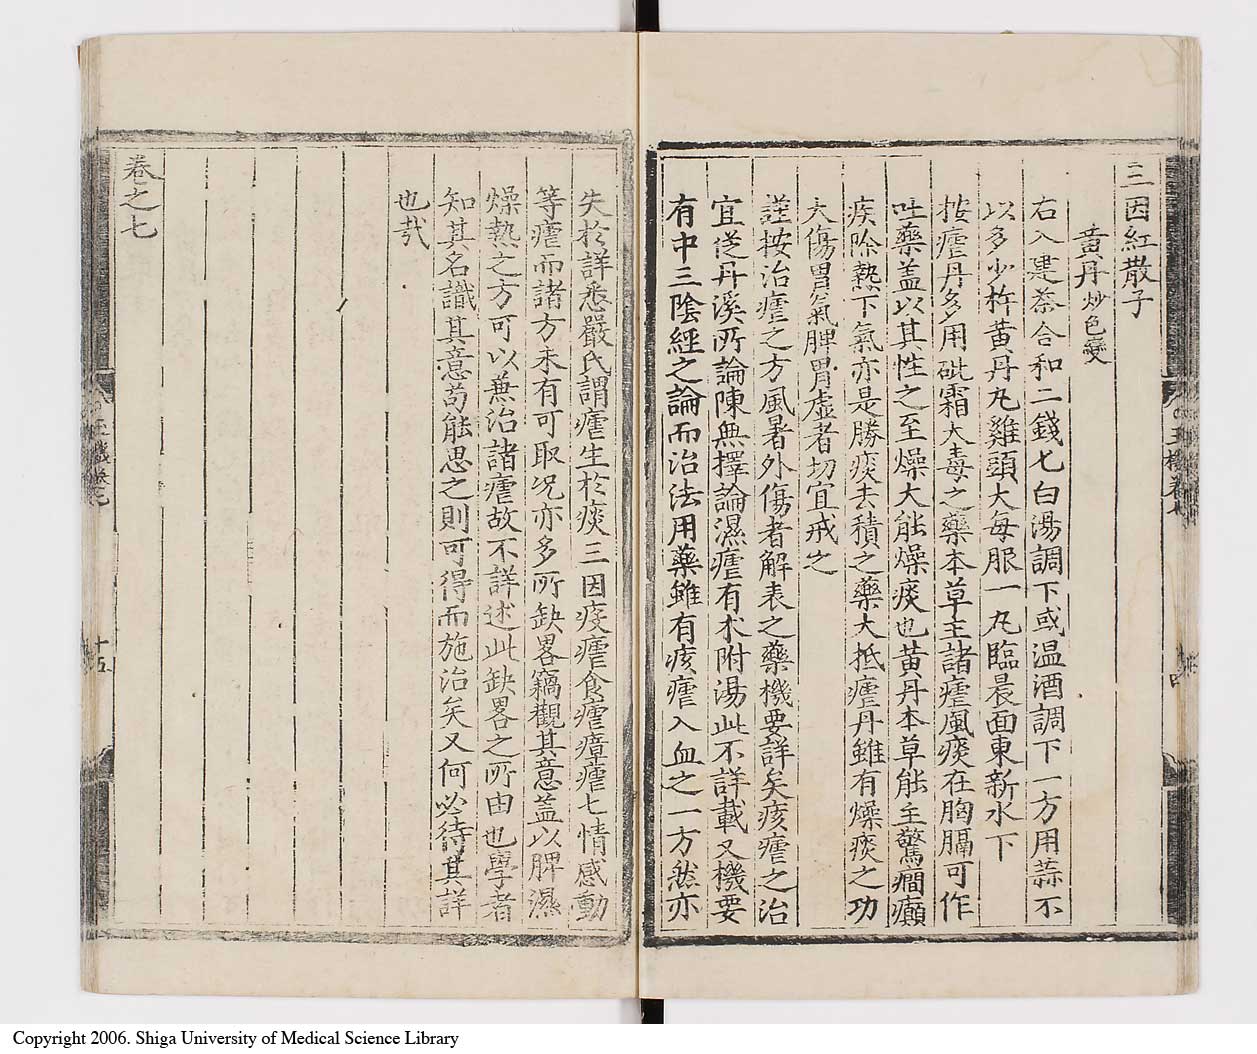 三因紅散子
黄丹炒色變
右入建茶合和二錢匕白湯調下或温酒調下一方用蒜不
以多少杵黄丹丸雞頭大每服一丸臨晨面東新水下
按瘧丹多用砒霜大毒之藥本草主諸瘧風痰在胸膈可作
吐藥盖以其性之至燥大能燥痰也黄丹本草能主驚癇癲
疾除熱下氣亦是勝痰去積之藥大抵瘧丹雖有燥痰之功
大傷胃氣脾胃虚者切宜戒之
謹按治瘧之方風暑外傷者解表之藥機要詳矣痎瘧之治
宜從丹溪所論陳無擇論濕瘧有朮附湯此不詳載又機要
有中三陰經之論而治法用藥雖有痎瘧入血之一方然亦
失於詳悉嚴氏謂瘧生於痰三因疫瘧食瘧瘴瘧七情感動
等瘧而諸方未有可取况亦多所缺畧竊觀其意盖以脾濕
燥熱之方可以兼治諸瘧故不詳述此缺畧之所由也學者
知其名識其意苟能思之則可得而施治矣又何必待其詳
也哉
卷之七
十五
Copyright 2006. Shiga University of Medical Science Library